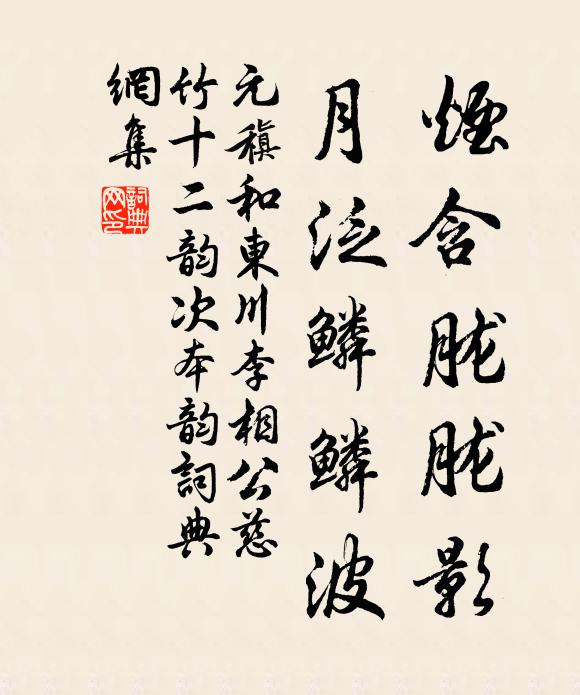 煙含胧胧影
月泛鱗鱗波
元稹和東川李相公慈
竹十二韵次本韵詞典
網集
詞典网印